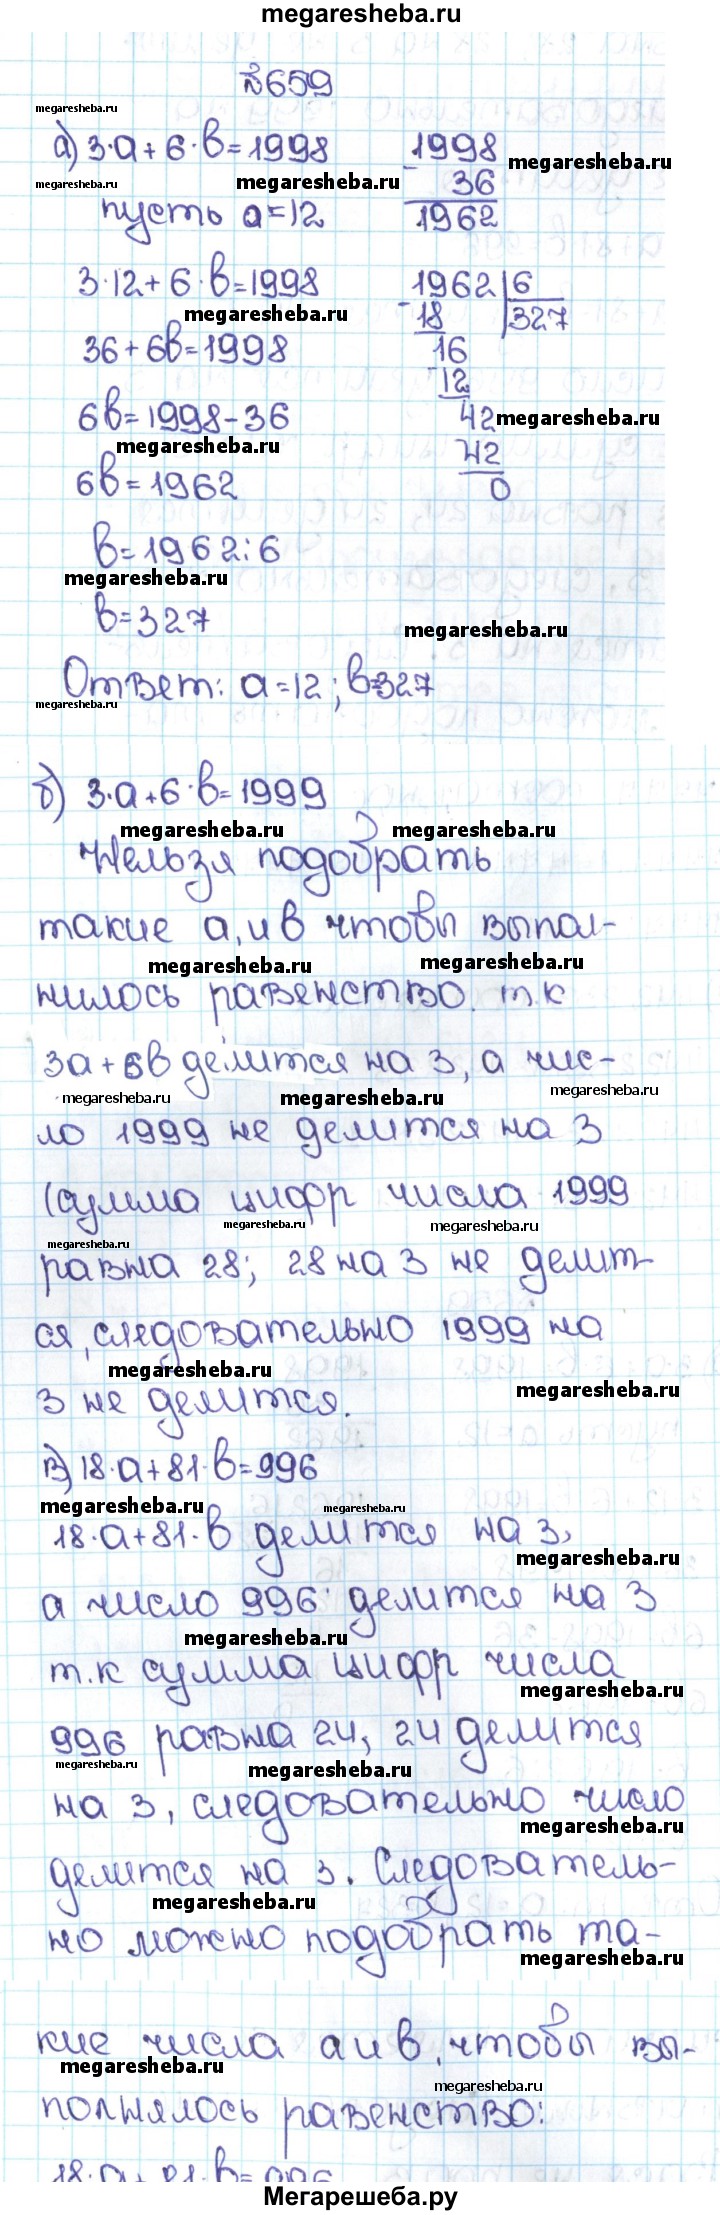 megaresheba.ru
№659
megaresheba.ru
а) 3·a+6·b=1998
1998
megaresheba.ru
36
megaresheba.ru
megaresheba.ru
1962
пусть a=12
3·12+6·b=1998
1962 6
megaresheba.ru
18 327
36+6b=1998
16
12
6b=1998-36
42 megaresheba.ru
megaresheba.ru
42
6b=1962
0
b=1962:6
megaresheba.ru
b=327
megaresheba.ru
Ответ: a=12; b=327
megaresheba.ru
б) 3·a+6·b=1999
megaresheba.ru megaresheba.ru
Нельзя подобрать
такие a, и b чтобы выпол-
megaresheba.ru megaresheba.ru
нилось равенство. т.к
3a+6b делится на 3, а чис-
megaresheba.ru megaresheba.ru megaresheba.ru
ло 1999 не делится на 3
(сумма цифр числа 1999
megaresheba.ru megaresheba.ru
megaresheba.ru
равна 28; 28 на 3 не делит-
ся, следовательно 1999 на
megaresheba.ru megaresheba.ru
3 не делится.
в) 18·a+81·b=996
megaresheba.ru megaresheba.ru
18·a+81·b делится на 3,
megaresheba.ru
а число 996 делится на 3
megaresheba.ru
т.к сумма цифр числа
megaresheba.ru
996 равна 24, 24 делится
megaresheba.ru megaresheba.ru
на 3, следовательно число
megaresheba.ru
делится на 3. Следователь-
megaresheba.ru
но можно подобрать та-
megaresheba.ru
кие числа a и b, чтобы вы-
megaresheba.ru
megaresheba.ru
полнялось равенство:
18·a+81·b=996
Мегарешеба.ру